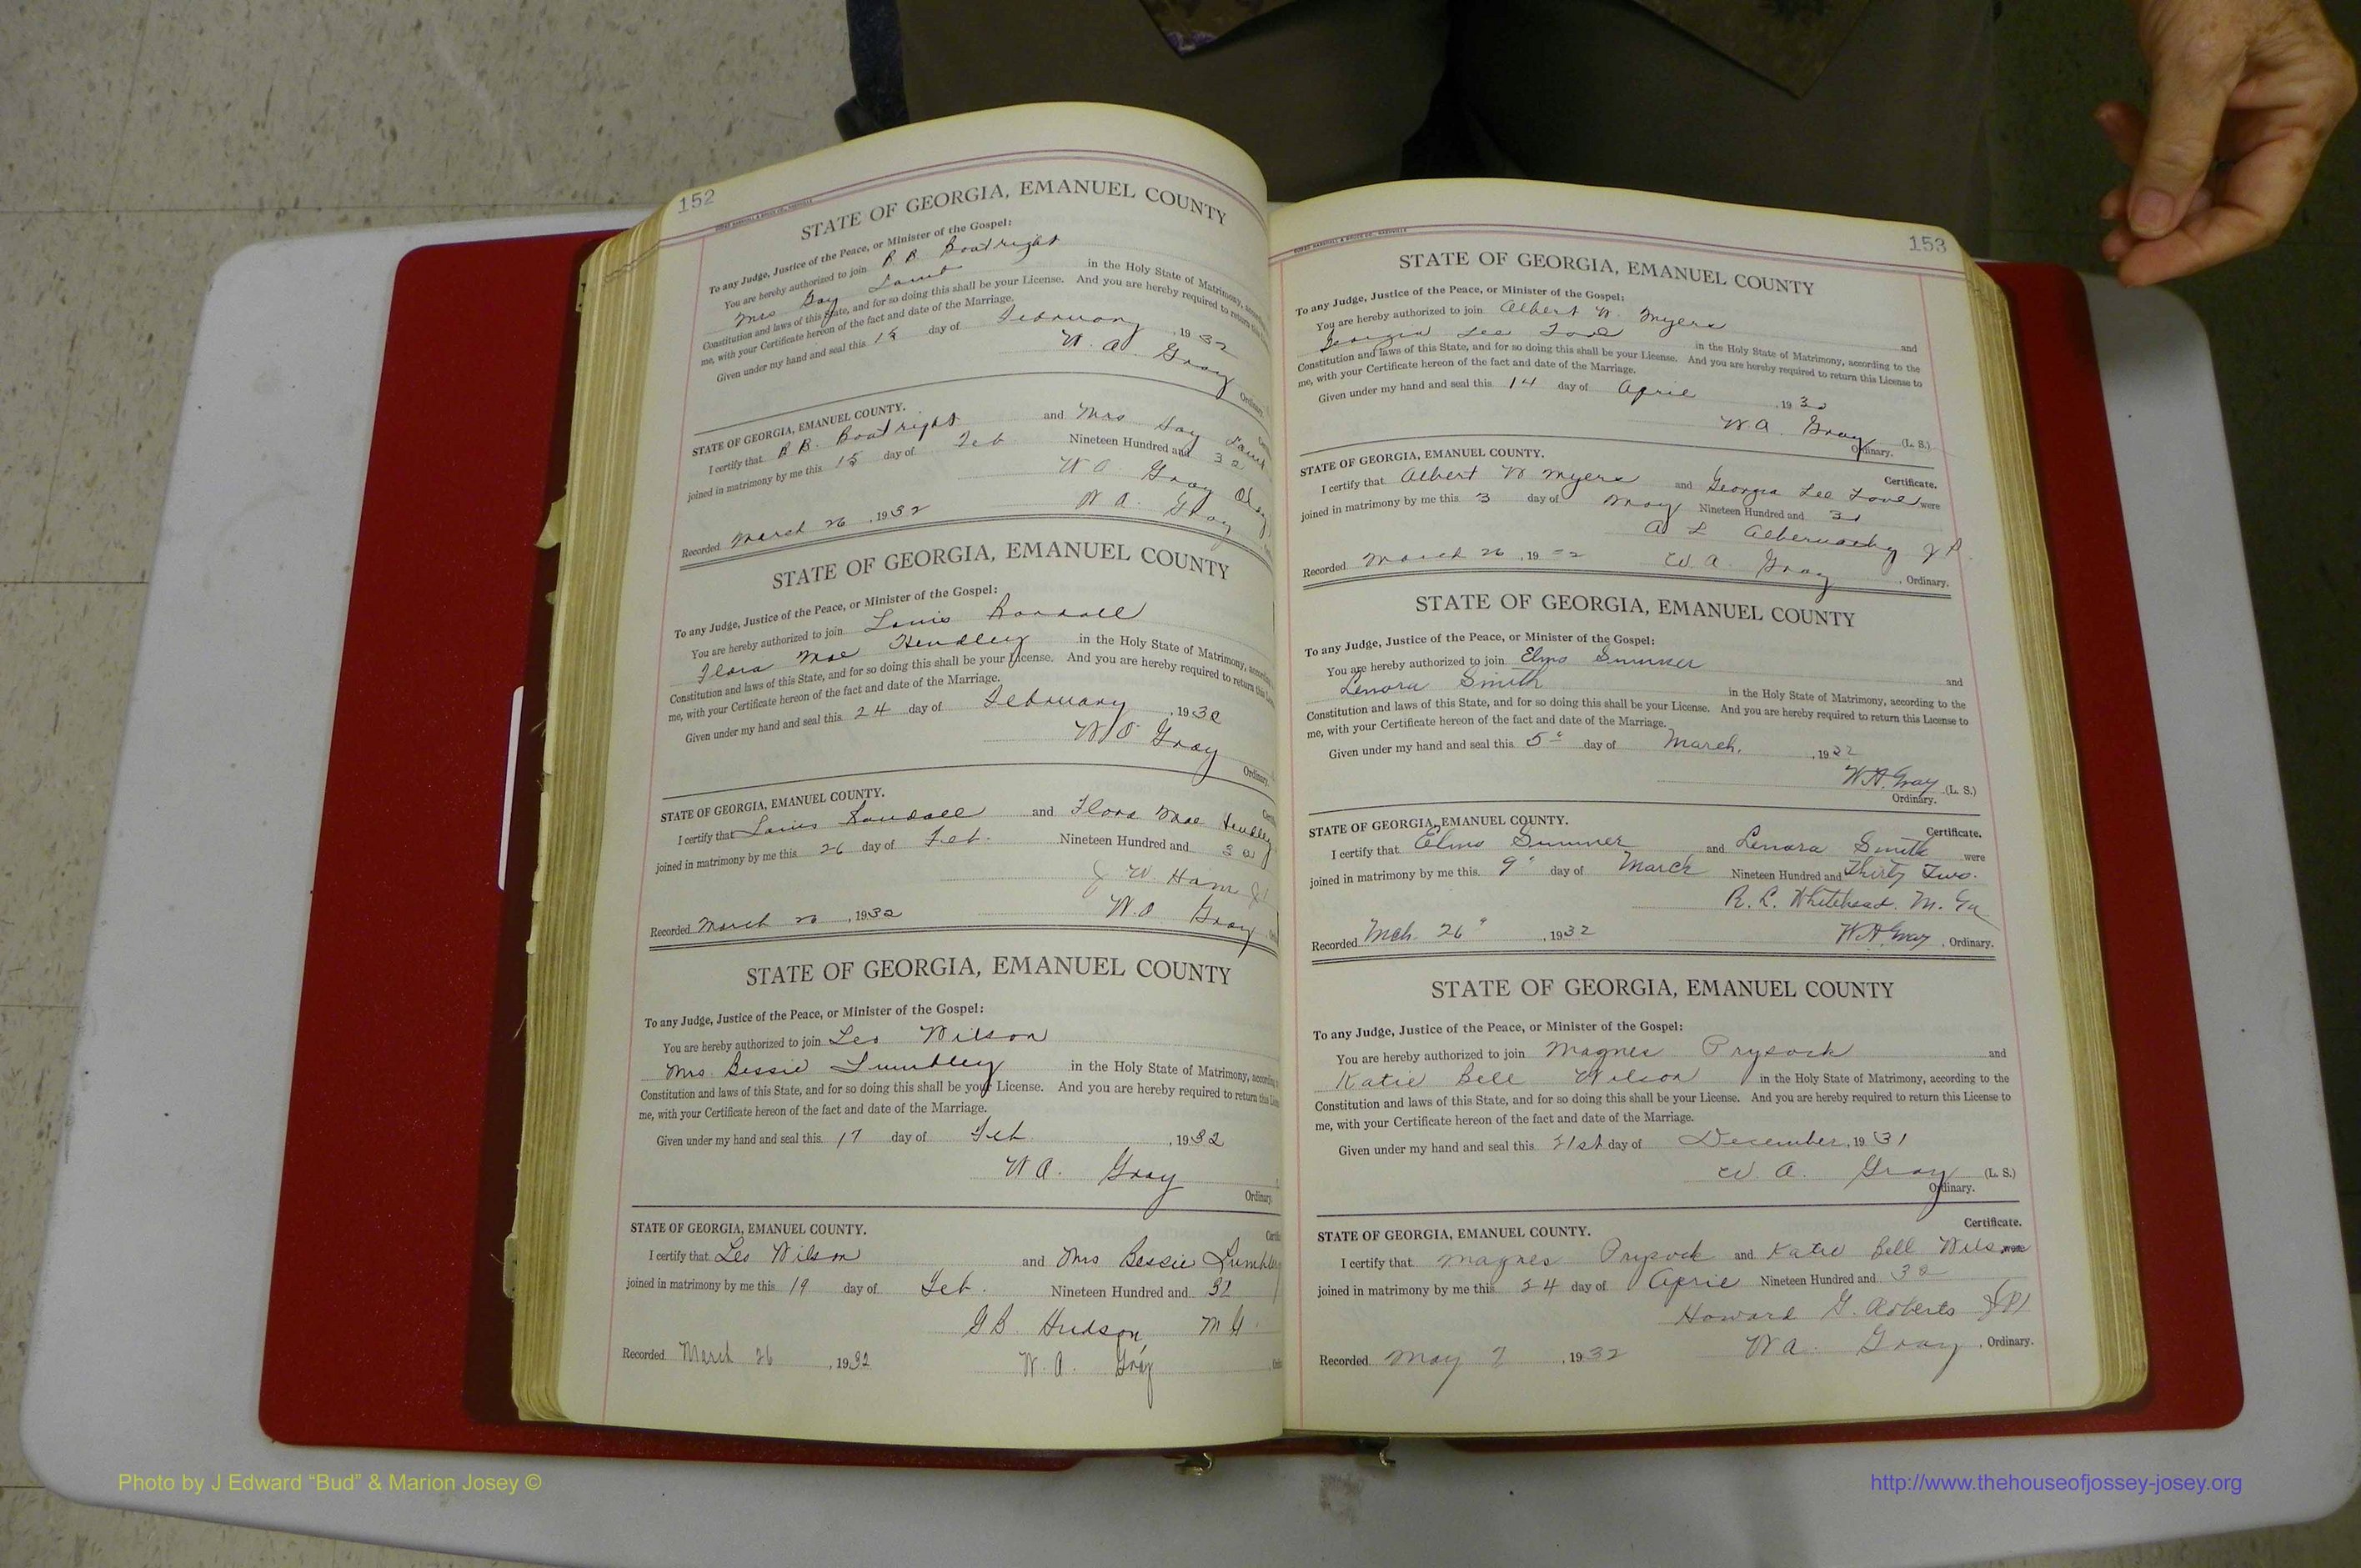 152
STATE OF GEORGIA, EMANUEL COUNTY
To any Judge, Justice of the Peace, or Minister of the Gospel:
You are hereby authorized to join R. B. Boatright
Mrs Gay Lamb in the Holy State of Matrimony,
Constitution and laws of this State, and for so doing this shall be your License. And you are hereby required to return
me, with your Certificate hereon of the fact and date of the Marriage.
Given under my hand and seal this 15 day of February, 1932
W. A. Gray
Ordinary.
STATE OF GEORGIA, EMANUEL COUNTY.
I certify that R B. Boatright and Mrs Gay Lamb
joined in matrimony by me this 15 day of Feb Nineteen Hundred and 32
W A Gray
W A. Gray
Recorded March 26, 1932
STATE OF GEORGIA, EMANUEL COUNTY
To any Judge, Justice of the Peace, or Minister of the Gospel:
You are hereby authorized to join Louis Randall
Flora Mae Hendley in the Holy State of Matrimony,
Constitution and laws of this State, and for so doing this shall be your License. And you are hereby required to return this
me, with your Certificate hereon of the fact and date of the Marriage.
Given under my hand and seal this 24 day of February, 1932
W A Gray
Ordinary.
STATE OF GEORGIA, EMANUEL COUNTY.
I certify that Louis Randall and Flora Mae Hendley
joined in matrimony by me this 26 day of Feb. Nineteen Hundred and 32
J W. Ham
W. A Gray
Recorded March 26, 1932
STATE OF GEORGIA, EMANUEL COUNTY
To any Judge, Justice of the Peace, or Minister of the Gospel:
You are hereby authorized to join Leo Wilson
Mrs. Bessie Lumbley in the Holy State of Matrimony,
Constitution and laws of this State, and for so doing this shall be your License. And you are hereby required to return this
me, with your Certificate hereon of the fact and date of the Marriage.
Given under my hand and seal this 17 day of Feb, 1932
W A. Gray
Ordinary.
STATE OF GEORGIA, EMANUEL COUNTY.
I certify that Leo Wilson and Mrs Bessie Lumbley
joined in matrimony by me this 19 day of Feb. Nineteen Hundred and 32
G B. Hudson M G.
W. A. Gray
Recorded March 26, 1932
153
STATE OF GEORGIA, EMANUEL COUNTY
To any Judge, Justice of the Peace, or Minister of the Gospel:
You are hereby authorized to join Albert W. Myers and
Georgia Lee Love in the Holy State of Matrimony, according to the
Constitution and laws of this State, and for so doing this shall be your License. And you are hereby required to return this License to
me, with your Certificate hereon of the fact and date of the Marriage.
Given under my hand and seal this 14 day of April, 19
W A. Gray (L. S.)
Ordinary.
STATE OF GEORGIA, EMANUEL COUNTY.
Certificate.
I certify that Albert W Myers and Georgia Lee Love were
joined in matrimony by me this 3 day of May Nineteen Hundred and
A L Abernathy J P.
Recorded March 26, 19 W. A. Gray, Ordinary.
STATE OF GEORGIA, EMANUEL COUNTY
To any Judge, Justice of the Peace, or Minister of the Gospel:
You are hereby authorized to join Elmo Sumner and
Lenora Smith in the Holy State of Matrimony, according to the
Constitution and laws of this State, and for so doing this shall be your License. And you are hereby required to return this License to
me, with your Certificate hereon of the fact and date of the Marriage.
Given under my hand and seal this 5" day of March., 19
W.A. Gray (L. S.)
Ordinary.
STATE OF GEORGIA, EMANUEL COUNTY.
Certificate.
I certify that Elmo Sumner and Lenora Smith were
joined in matrimony by me this 9" day of March Nineteen Hundred and Thirty Two.
R. L. Whitehead. M.
Recorded Mch. 26", 1932 W.A. Gray, Ordinary.
STATE OF GEORGIA, EMANUEL COUNTY
To any Judge, Justice of the Peace, or Minister of the Gospel:
You are hereby authorized to join Magnes Prysock and
Katie Bell Wilson in the Holy State of Matrimony, according to the
Constitution and laws of this State, and for so doing this shall be your License. And you are hereby required to return this License to
me, with your Certificate hereon of the fact and date of the Marriage.
Given under my hand and seal this day of December, 1931
W. A. Gray (L. S.)
Ordinary.
STATE OF GEORGIA, EMANUEL COUNTY.
Certificate.
I certify that Magnes Prysock and Katie Bell Wilson were
joined in matrimony by me this 24 day of April Nineteen Hundred and 32
Howard G. Roberts J P
Recorded May 7, 1932 W A. Gray, Ordinary.
Photo by J Edward “Bud” & Marion Josey ©
http://www.thehouseofjossey-josey.org